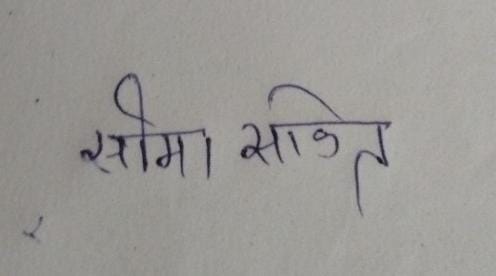 सीमा सावित